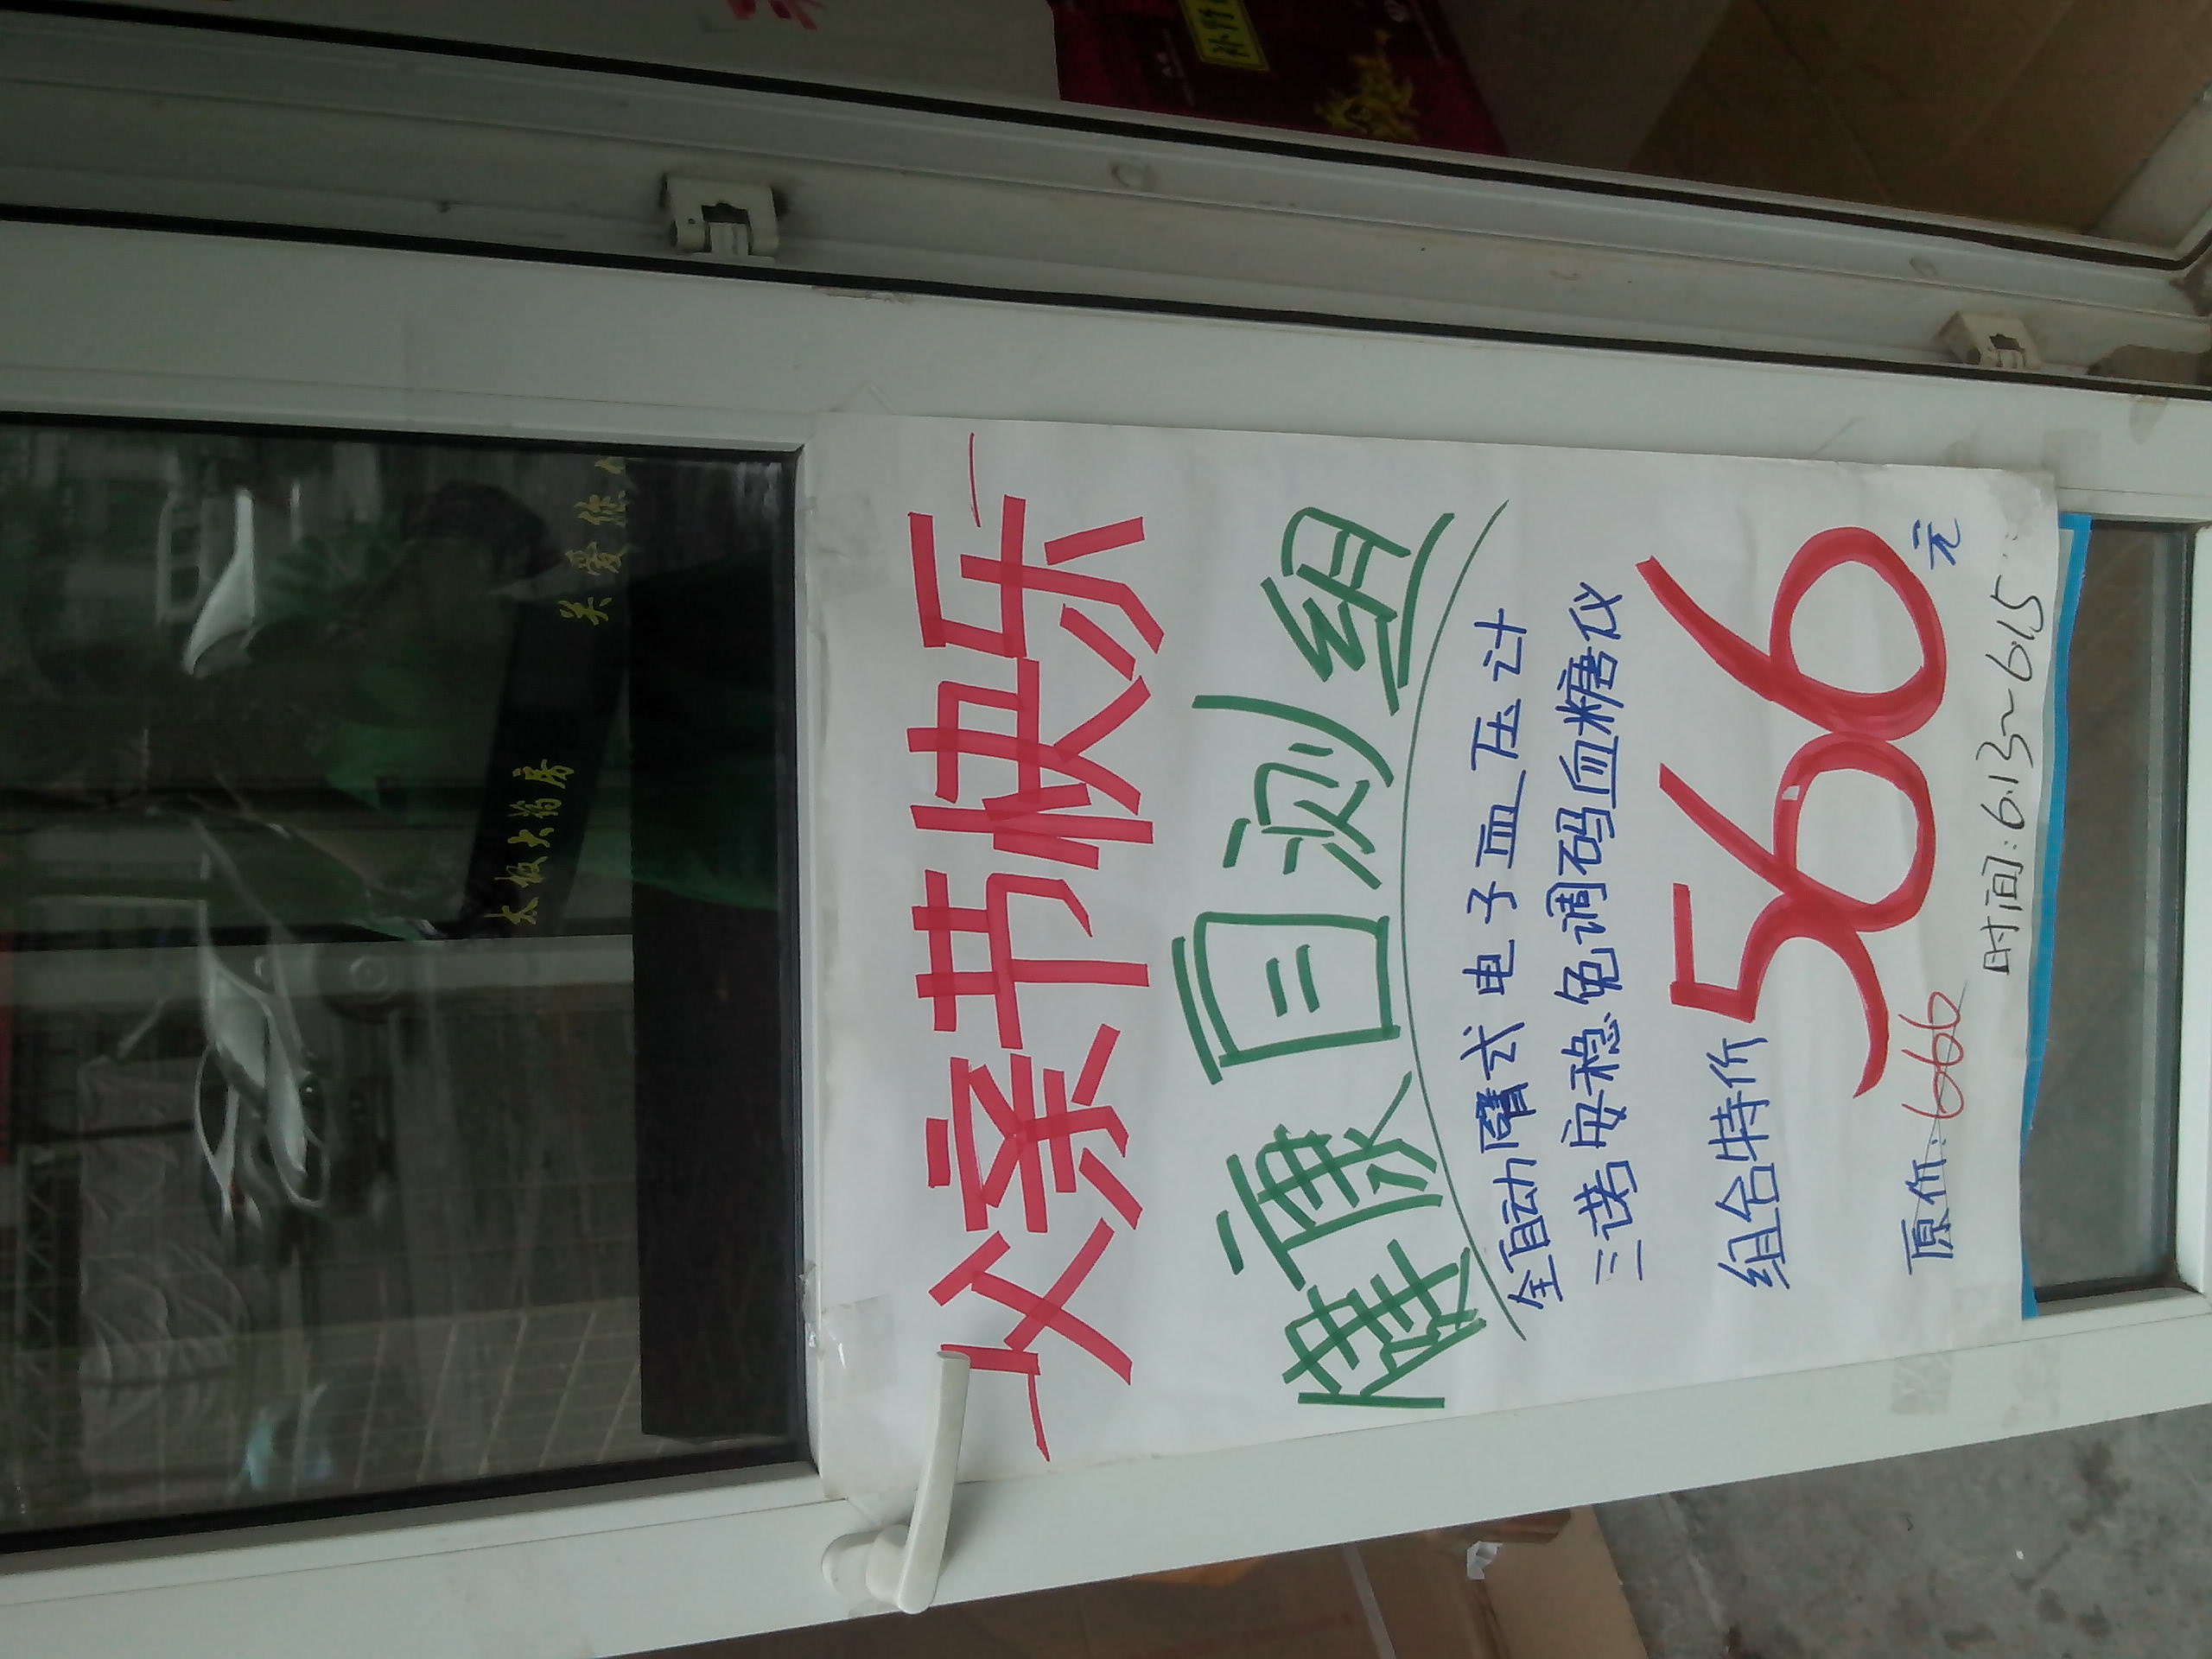 父亲节快乐
健康自测组
全自动臂式电子血压计
三诺安稳免调码血糖仪
组合特价 566元
原价:666
时间:6.13~6.15
太极大药房
关爱你